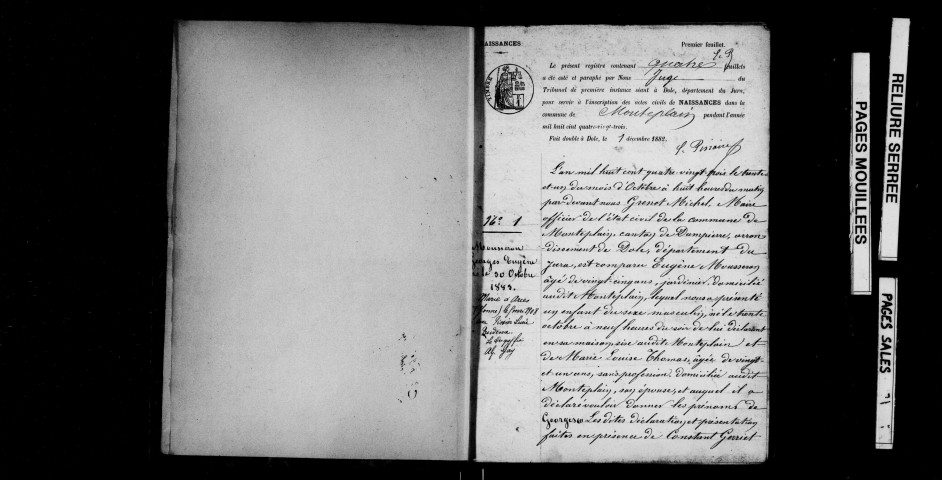 NAISSANCES
Premier feuillet.
Le présent registre contenant quatre feuillets
a été coté et paraphé par Nous Juge du
Tribunal de première instance séant à Dole, département du Jura,
pour servir à l'inscription des actes civils de NAISSANCES dans la
commune de Monteplain pendant l'année
mil huit cent quatre-vingt-trois.
Fait double à Dole, le 1 décembre 1882.
L'an mil huit cent quatre vingt trois le trente
et un du mois d'Octobre à huit heures du matin
par devant nous Grenot Michel Maire
officier de l'état civil de la commune de
Monteplain, canton de Dampierre, arron
dissement de Dole, département du
Jura, est comparu Eugène Mousseron
âgé de vingt-cinq ans, jardinier, domicilié
audit Monteplain, lequel nous a présenté
un enfant du sexe masculin, né le trente
octobre à neuf heures du soir de lui déclarant
en sa maison, sise audit Monteplain et
de Marie Louise Thomas, âgée de vingt
et un ans, sans profession, domiciliée audit
Monteplain, son épouse, et auquel il a
déclaré vouloir donner les prénoms de
Georges Les dites déclaration et présentation
faites en présence de Constant Gerriet
No 1
Mousseron
Georges Eugène
né le 30 Octobre
1883.
Marié à
Le Greffier
RELIURE SERREE
PAGES MOUILLEES
PAGES SALES